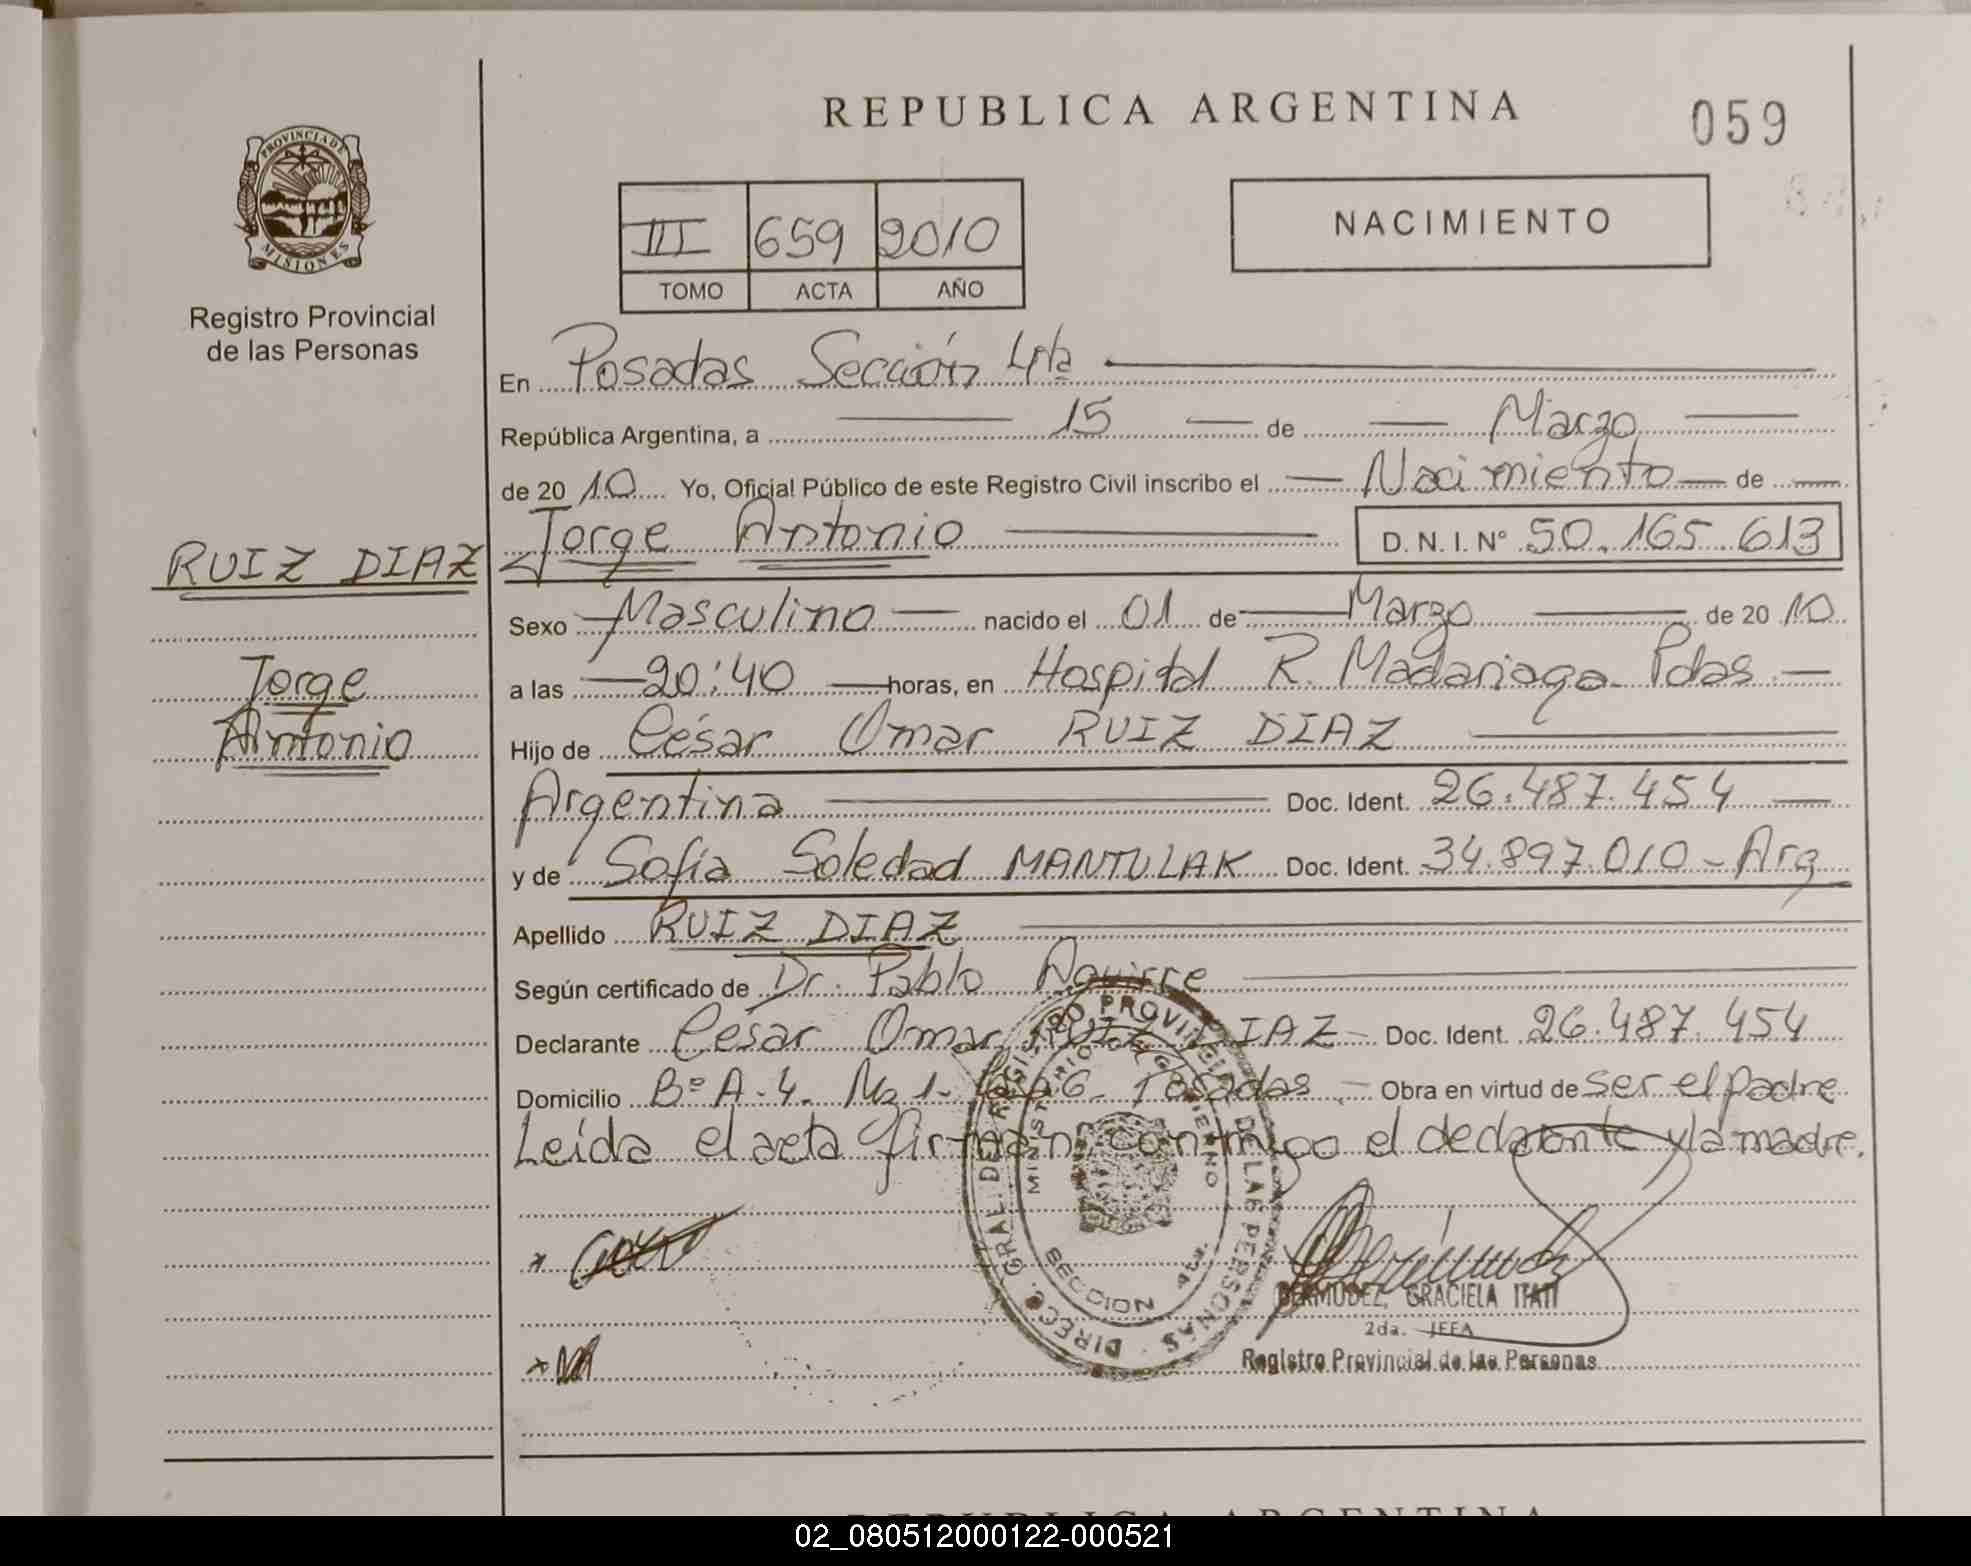 REPUBLICA ARGENTINA
059
PROVINCIA DE
MISIONES
Registro Provincial
de las Personas
III 659 2010
TOMO ACTA AÑO
NACIMIENTO
En Posadas Sección 4ta
República Argentina, a 15 de Marzo
de 20 10 Yo, Oficial Público de este Registro Civil inscribo el Nacimiento de
Jorge Antonio D.N.I. Nº 50.165.613
RUIZ DIAZ
Jorge
Antonio
Sexo Masculino nacido el 01 de Marzo de 20 10
a las 20:40 horas, en Hospital R. Madariaga Pdas
Hijo de César Omar RUIZ DIAZ
Argentina Doc. Ident. 26.487.454
y de Sofía Soledad MANTULAK Doc. Ident. 34.897.010 - Arg
Apellido RUIZ DIAZ
Según certificado de Dr. Pablo Aguirre
Declarante César Omar RUIZ DIAZ Doc. Ident. 26.487.454
Domicilio Bº A-4. Mz 1- Posadas - Obra en virtud de ser el padre
Leída el acta firman conmigo el declarante y la madre.
DIRECC. GRAL. DE REGISTRO PROVINCIAL DE LAS PERSONAS
MINISTERIO DE GOBIERNO
SECCION 4ta.
BERMUDEZ, GRACIELA ITATI
2da. JEFA
Registro Provincial de las Personas
REPUBLICA ARGENTINA
02_080512000122-000521